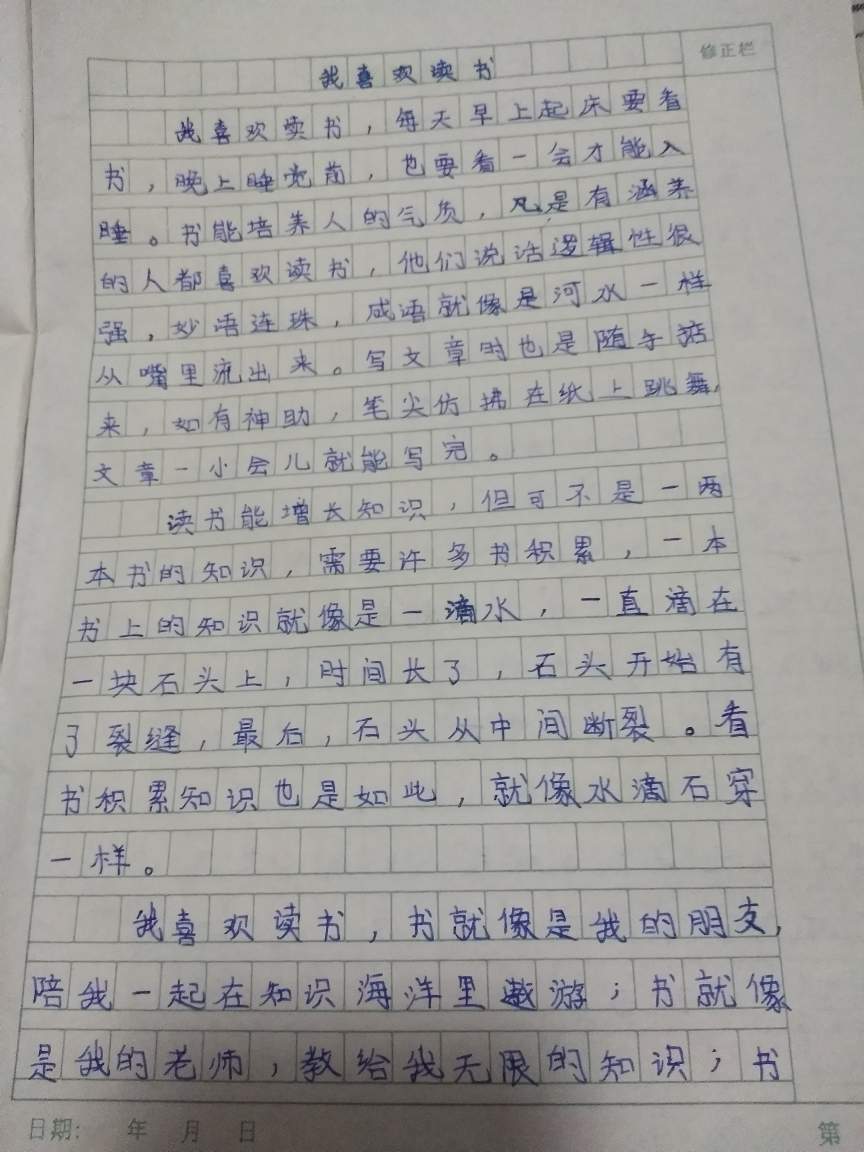 修正栏
我喜欢读书
我喜欢读书，每天早上起床要看
书，晚上睡觉前，也要看一会才能入
睡。书能培养人的气质，凡是有涵养
的人都喜欢读书，他们说话逻辑性很
强，妙语连珠，成语就像是河水一样
从嘴里流出来。写文章时也是随手掂
来，如有神助，笔尖仿拂在纸上跳舞，
文章一小会儿就能写完。
读书能增长知识，但可不是一两
本书的知识，需要许多书积累，一本
书上的知识就像是一滴水，一直滴在
一块石头上，时间长了，石头开始有
了裂缝，最后，石头从中间断裂。看
书积累知识也是如此，就像水滴石穿
一样。
我喜欢读书，书就像是我的朋友，
陪我一起在知识海洋里遨游；书就像
是我的老师，教给我无限的知识；书
日期： 年 月 日 第